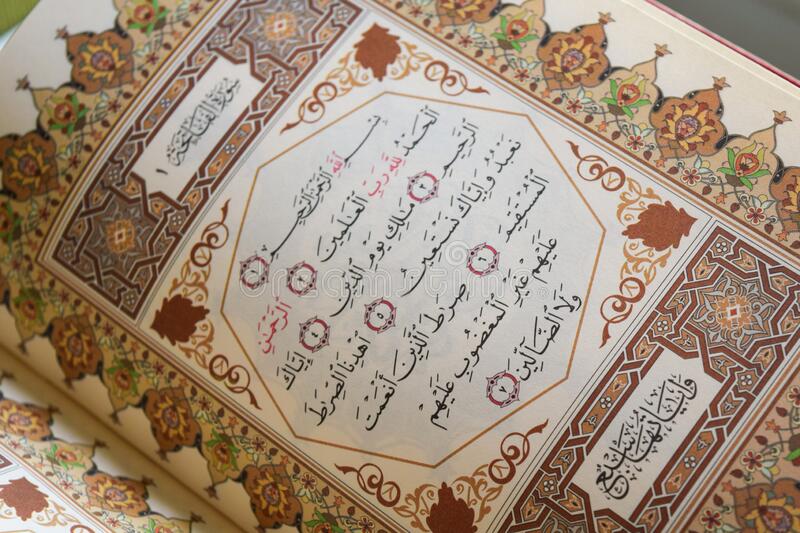 سُورَةُ الفَاتِحَة ١
بِسْمِ ٱللَّهِ ٱلرَّحْمَٰنِ ٱلرَّحِيمِ ١
ٱلْحَمْدُ لِلَّهِ رَبِّ ٱلْعَٰلَمِينَ ٢ ٱلرَّحْمَٰنِ
ٱلرَّحِيمِ ٣ مَٰلِكِ يَوْمِ ٱلدِّينِ ٤ إِيَّاكَ
نَعْبُدُ وَإِيَّاكَ نَسْتَعِينُ ٥ ٱهْدِنَا ٱلصِّرَٰطَ
ٱلْمُسْتَقِيمَ ٦ صِرَٰطَ ٱلَّذِينَ أَنْعَمْتَ
عَلَيْهِمْ غَيْرِ ٱلْمَغْضُوبِ عَلَيْهِمْ
وَلَا ٱلضَّآلِّينَ ٧
وَآيَاتُهَا سَبْع
dreamstime